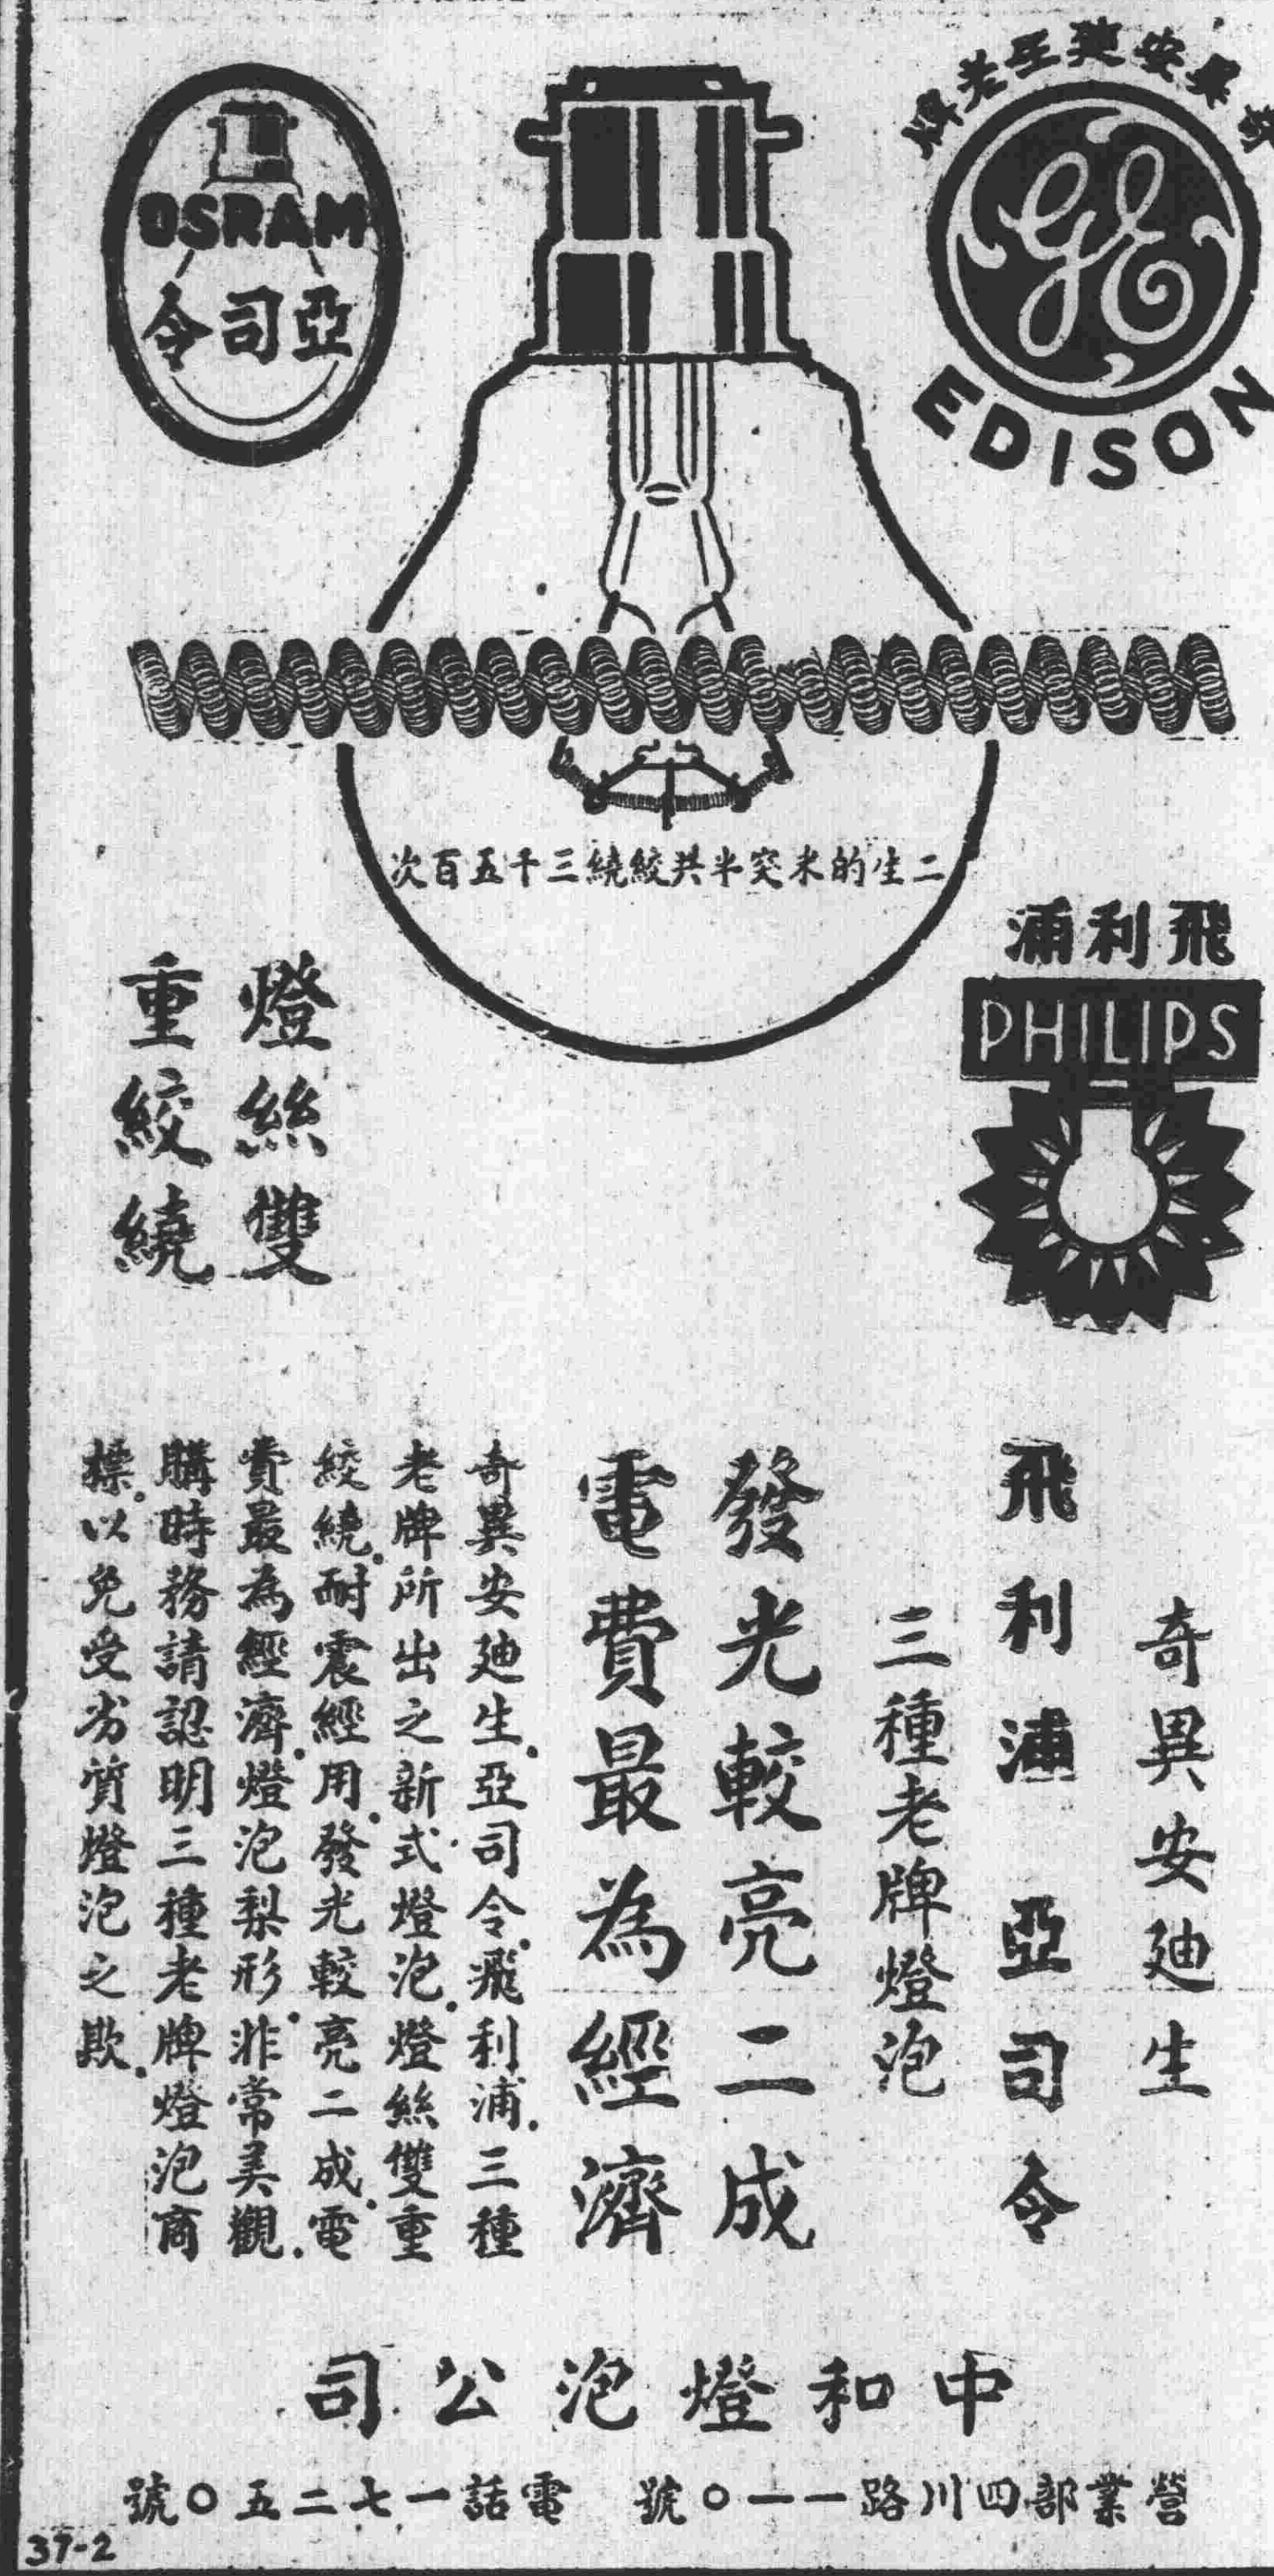 奇異安廸生老牌
EDISON
OSRAM
亞司令
二生的米突半共絞繞三千五百次
飛利浦
PHILIPS
燈絲雙
重絞繞
奇異安廸生
飛利浦 亞司令
三種老牌燈泡
發光較亮二成
電費最為經濟
奇異安廸生.亞司令.飛利浦.三種
老牌所出之新式燈泡.燈絲雙重
絞繞.耐震經用.發光較亮二成.電
費最為經濟.燈泡梨形.非常美觀.
購時務請認明三種老牌燈泡商
標.以免受劣質燈泡之欺.
中和燈泡公司
營業部四川路一一〇號 電話一七二五〇號
37-2